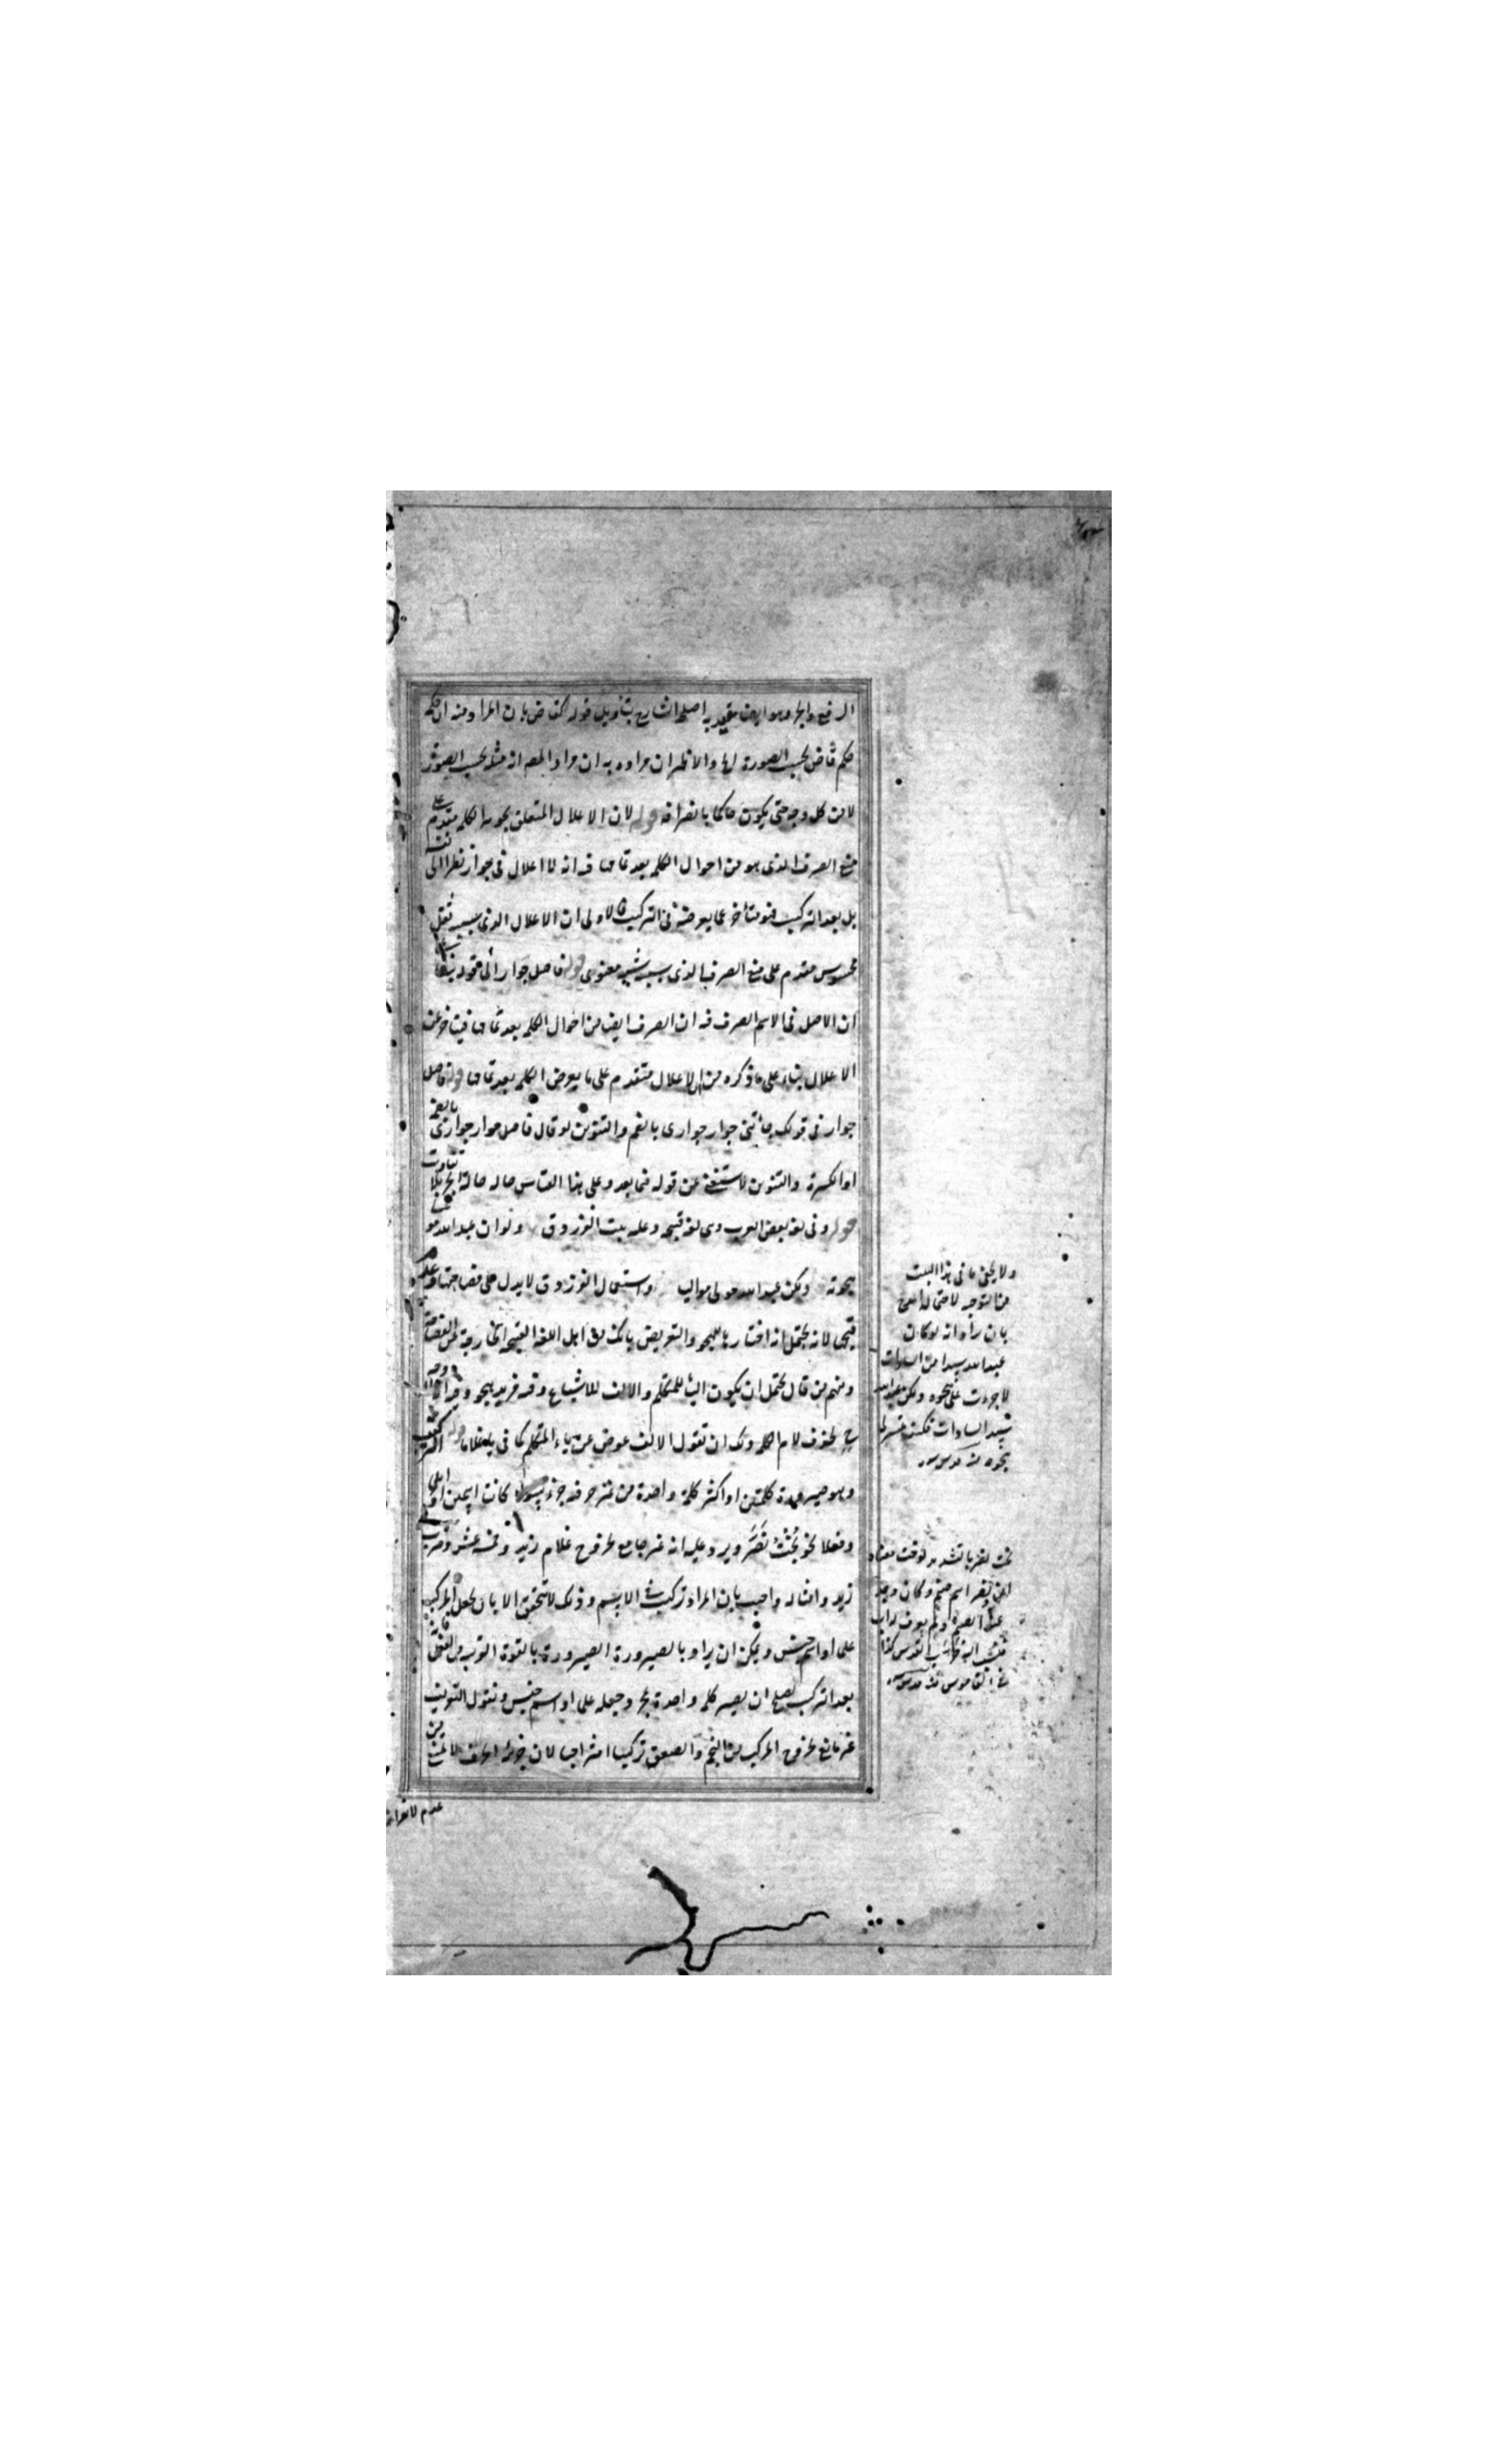 الرفع والجر وهو ايضا مقيد به اصلحه الشارح بتأويل قوله كقاض بان المراد منه ان حكمه
حكم قاض بحسب الصورة والاظهر ان مراده به ان مراد المص انه مثله بحسب الصورة
لا من كل وجه حتى يكون حاكما بانصرافه قوله لان الاعلال المتعلق بجوهر الكلمة مقدم على
منع الصرف الذى هو من احوال الكلمة بعد تمامها فيه انه لا اعلال فى جوار نظرا الى
بل بعد التركيب فهو متأخر عما يعرضه فى التركيب فالاولى ان الاعلال الذى سببه ثقل
محسوس مقدم على منع الصرف الذى سببه شبه معنوى قوله فاصل جوار
ان الاصل فى الاسم الصرف فيه ان الصرف ايضا من احوال الكلمة بعد تمامها فيتأخر عن
الاعلال بناء على ما ذكره من ان الاعلال متقدم على ما يعرض الكلمة بعد تمامها قوله فاصل
جوار فى قولك جائتنى جوار جوارى بالضم والتنوين لو قال فاصل جوار جوارى بالضم
او الكسرة والتنوين لاستغنى عن قوله فيما بعد وعلى هذا القياس حاله حالة الجر بلا تفاوت
قوله وفى لغة بعض العرب وهى لغة قبيحة وعليه بيت الفرزدق ولو ان عبد الله مو
هجوته ولكن عبد الله مولى مواليا واستعمال الفرزدق لا يدل على فصاحتها وعدم
قبحها لانه يحتمل انه اختارها للهجو والتعريض بانك من اهل اللغة القبيحة الخارجة عن الفصاحة
ومنهم من قال يحتمل ان يكون الياء للمتكلم والالف للاشباع وفيه مزيد هجو
ح لحذف لام الكلمة ولك ان تقول الالف عوض عن ياء المتكلم كما فى يا غلاما قوله التركيب
وهو صيرورة كلمتين او اكثر كلمة واحدة من غير حرفية جزء سواء كانتا اسمين
وفعلا نحو بخت نصر ويرد عليه انه غير جامع لخروج غلام زيد وخمسة عشر وضرب
زيد وامثاله واجيب بان المراد تركيب الاسم وذلك لا يتحقق الا بان يجعل المركب
علما او اسم جنس ويمكن ان يراد بالصيرورة الصيرورة بالقوة القريبة من الفعل
بعد التركيب يصلح ان يصير كلمة واحدة بمجرد جعله علما او اسم جنس ونقول التعريف
غير مانع لخروج المركب من النجم والصعق تركيبا امتزاجيا لان جزئه الحرف لا يمنع من
عدم الانصراف
ولا يخفى ما فى هذا البيت
من التوجيه لاحتمال المدح
بان يراد انه لو كان
عبد الله سيدا من السادات
لاجرءت على هجوه ولكن عبد الله
سيد السادات فكيف
هجوه منه قدس سره
بخت نصر بالتشديد بوخت معناه
ابن ونصر اسم صنم وكان وجد
عند الصنم ولم يعرف له اب
فنسب اليه خرب القدس كذا
فى القاموس منه قدس سره